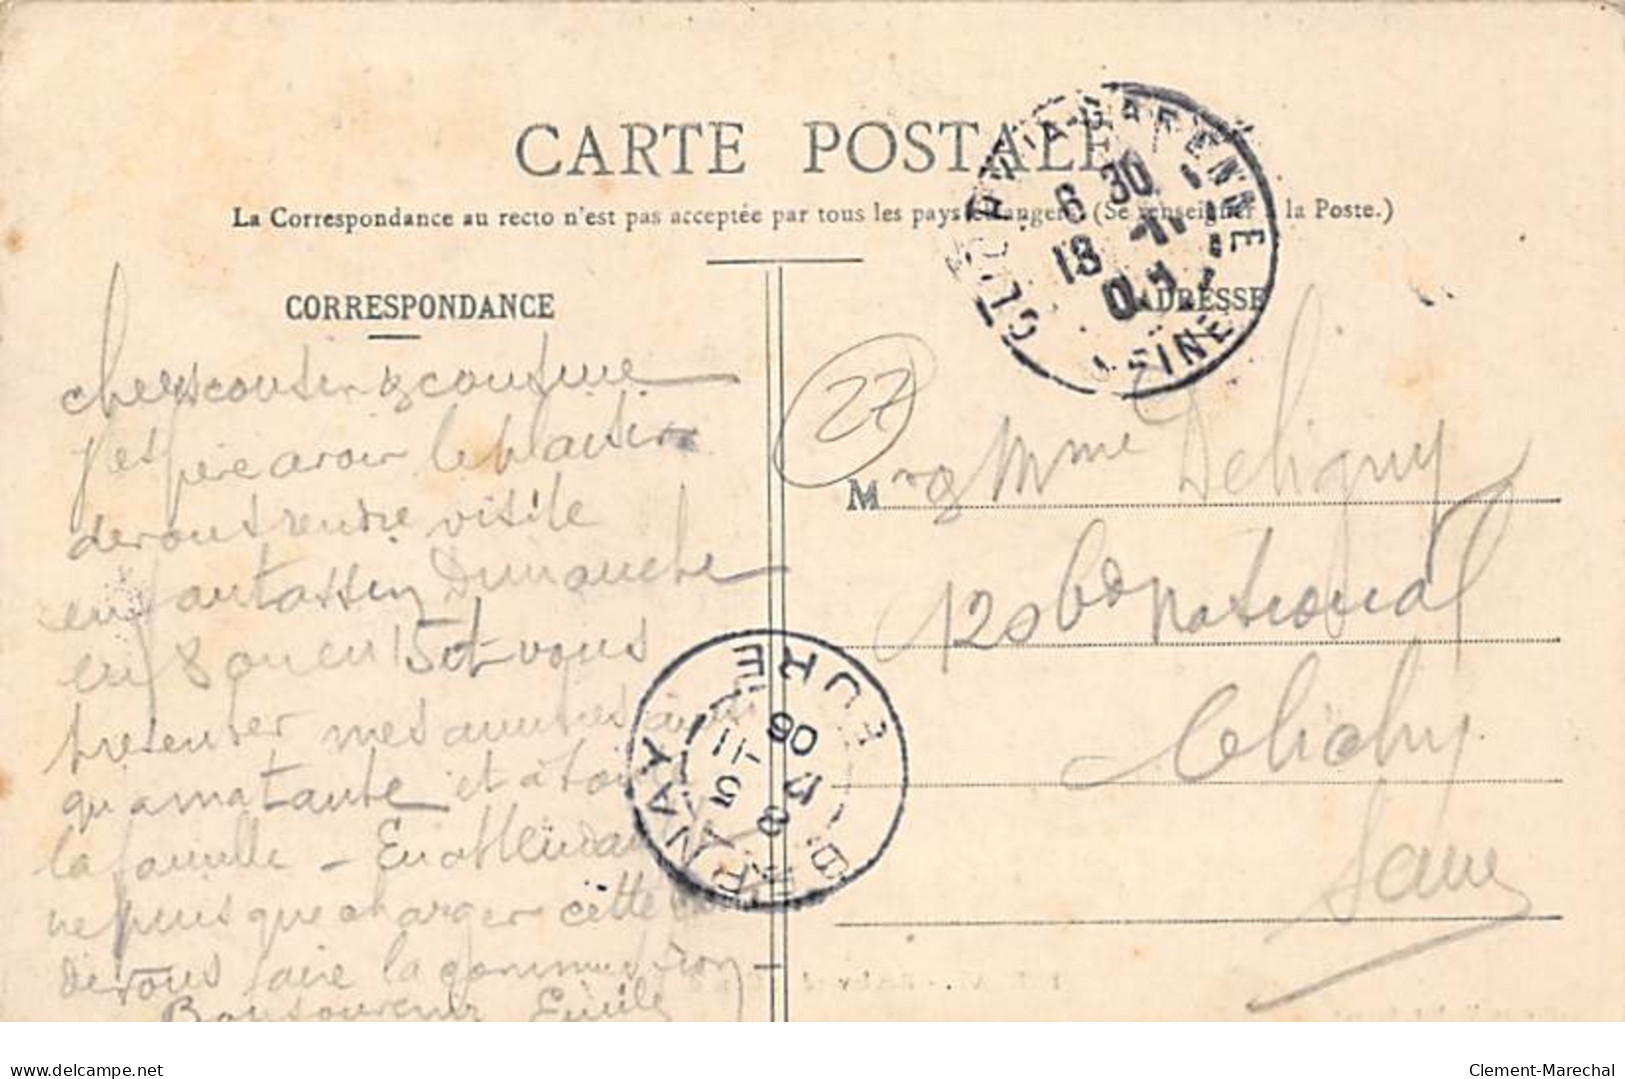 CARTE POSTALE
La Correspondance au recto n'est pas acceptée par tous les pays étrangers (Se renseigner à la Poste.)
CORRESPONDANCE
ADRESSE
CLICHY-LA-GARENNE
6 30
18 -11
SEINE
27
chers cousin & cousine
j'espère avoir le plaisir
de vous rendre visite
Dimanche
en 8 ou en 15 et vous
presenter mes amities ainsi
qu a ma tante et à toute
la famille - En attendant
ne puis que charger cette
de vous faire la commission -
Bons souvenirs Emile
BERNAY
EURE
8
5 -11
06
M r & Mme Deligny
120 Bd National
Clichy
Seine
www.delcampe.net
Clement-Marechal